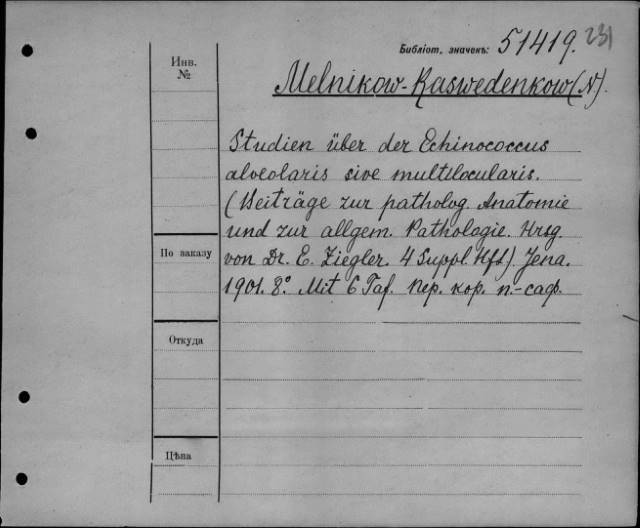 231
Библіот. значекъ: 51419.
Инв.
№
Melnikow-Raswedenkow (N).
Studien über der Echinococcus
alveolaris sive multilocularis.
(Beiträge zur patholog. Anatomie
und zur allgem. Pathologie. Hrsg.
По заказу
von Dr. E. Ziegler. 4 Suppl. Hft). Jena.
1901. 8°. Mit 6 Taf. Пер. кор. п.-саф.
Откуда
Цѣна